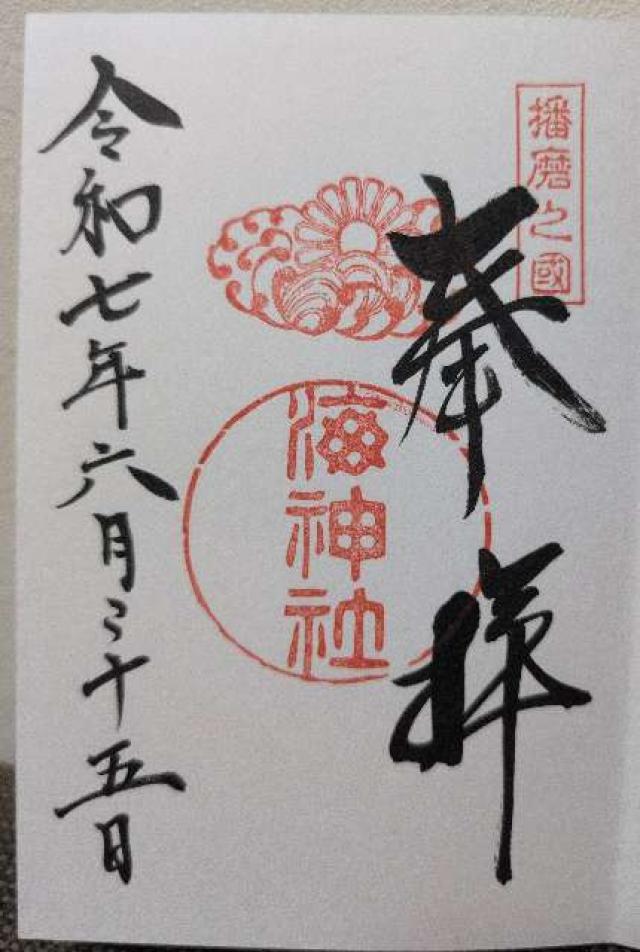 播磨之國
奉拝
海神社
令和七年六月二十五日